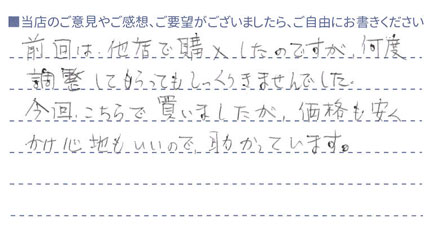 ■当店のご意見やご感想、ご要望がございましたら、ご自由にお書きください
前回は、他店で購入したのですが、何度
調整してもらってもしっくりきませんでした。
今回、こちらで買いましたが、価格も安く
かけ心地もいいので、助かっています。